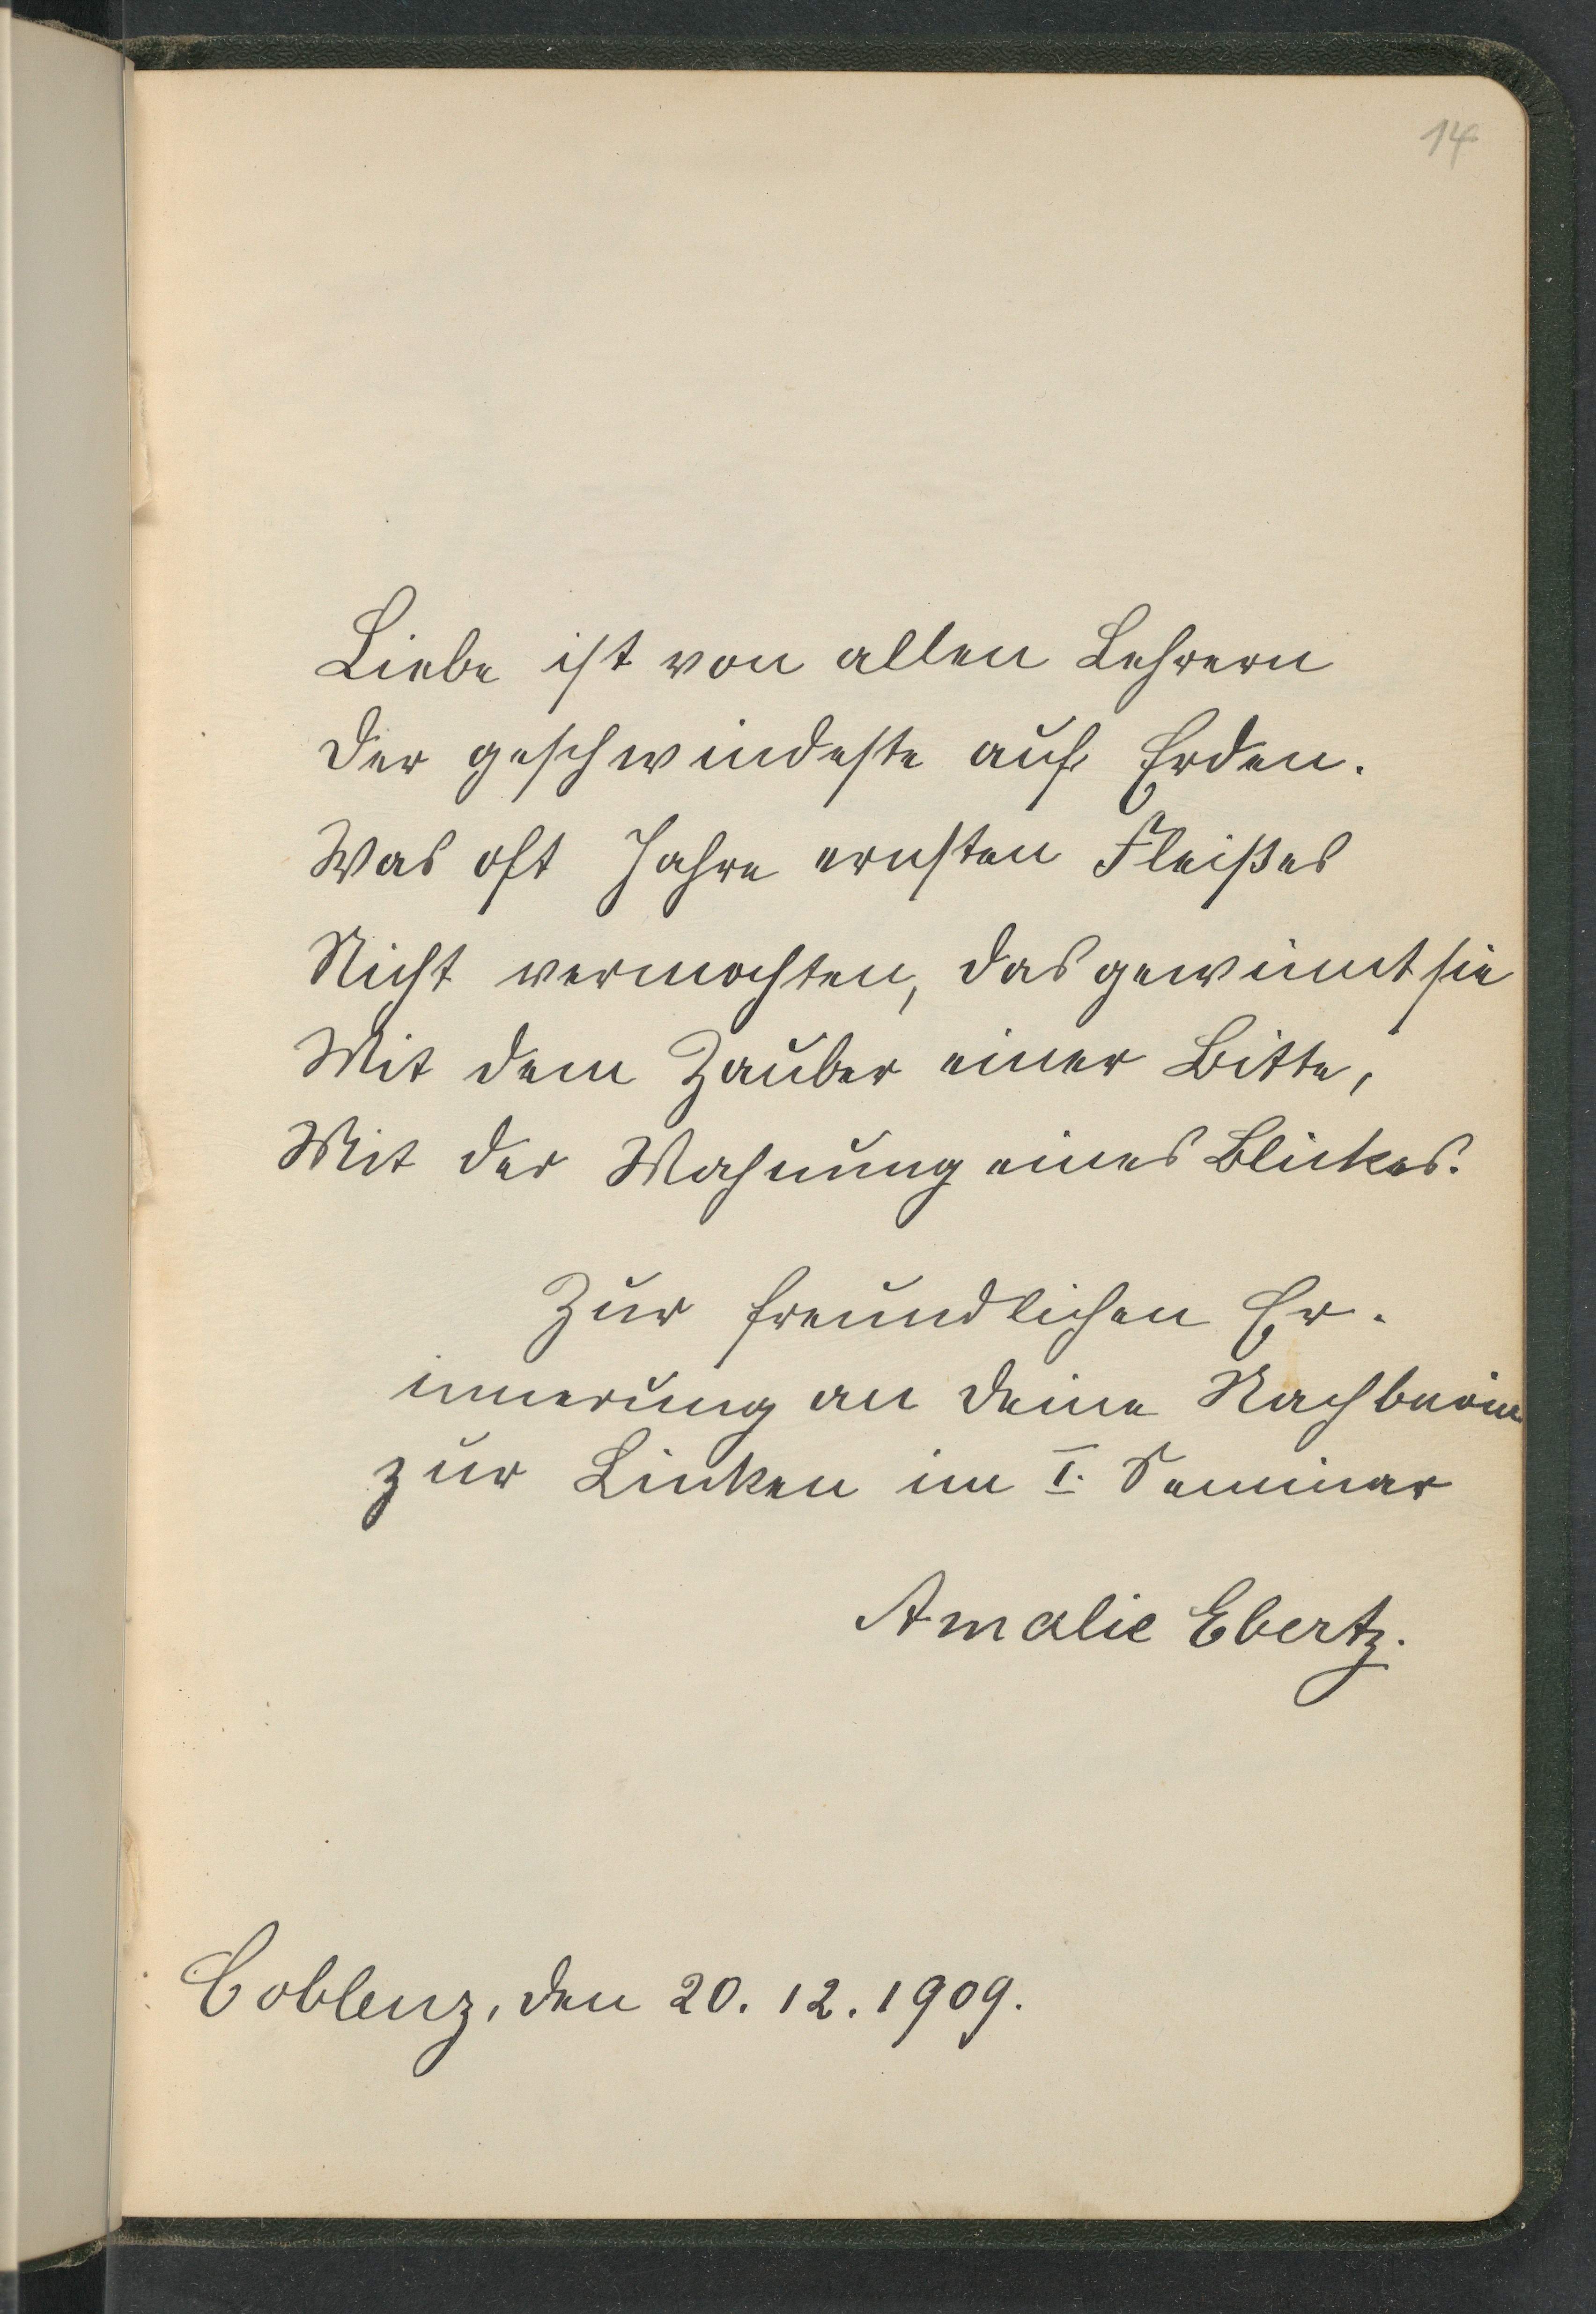 14
Liebe ist von allen Lehrern
Der geschwindeste auf Erden.
Was oft Jahre ernsten Fleißes
Nicht vermochten, das gewinnt sie
Mit dem Zauber einer Bitte,
Mit der Mahnung eines Blickes.
Zur freundlichen Er-
innerung an Deine Nachbarin
zur Linken im I. Seminar
Amalie Ebertz.
Coblenz, den 20. 12. 1909.